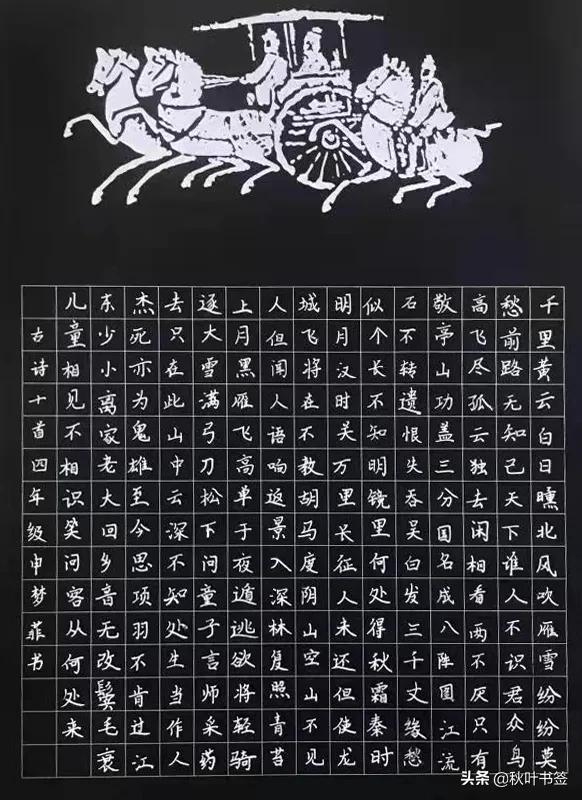 千里黄云白日曛北风吹雁雪纷纷莫
愁前路无知己天下谁人不识君众鸟
高飞尽孤云独去闲相看两不厌只有
敬亭山功盖三分国名成八阵图江流
石不转遗恨失吞吴白发三千丈缘愁
似个长不知明镜里何处得秋霜秦时
明月汉时关万里长征人未还但使龙
城飞将在不教胡马度阴山空山不见
人但闻人语响返景入深林复照青苔
上月黑雁飞高单于夜遁逃欲将轻骑
逐大雪满弓刀松下问童子言师采药
去只在此山中云深不知处生当作人
杰死亦为鬼雄至今思项羽不肯过江
东少小离家老大回乡音无改鬓毛衰
儿童相见不相识笑问客从何处来
古诗十首四年级申梦菲书
头条 @秋叶书签